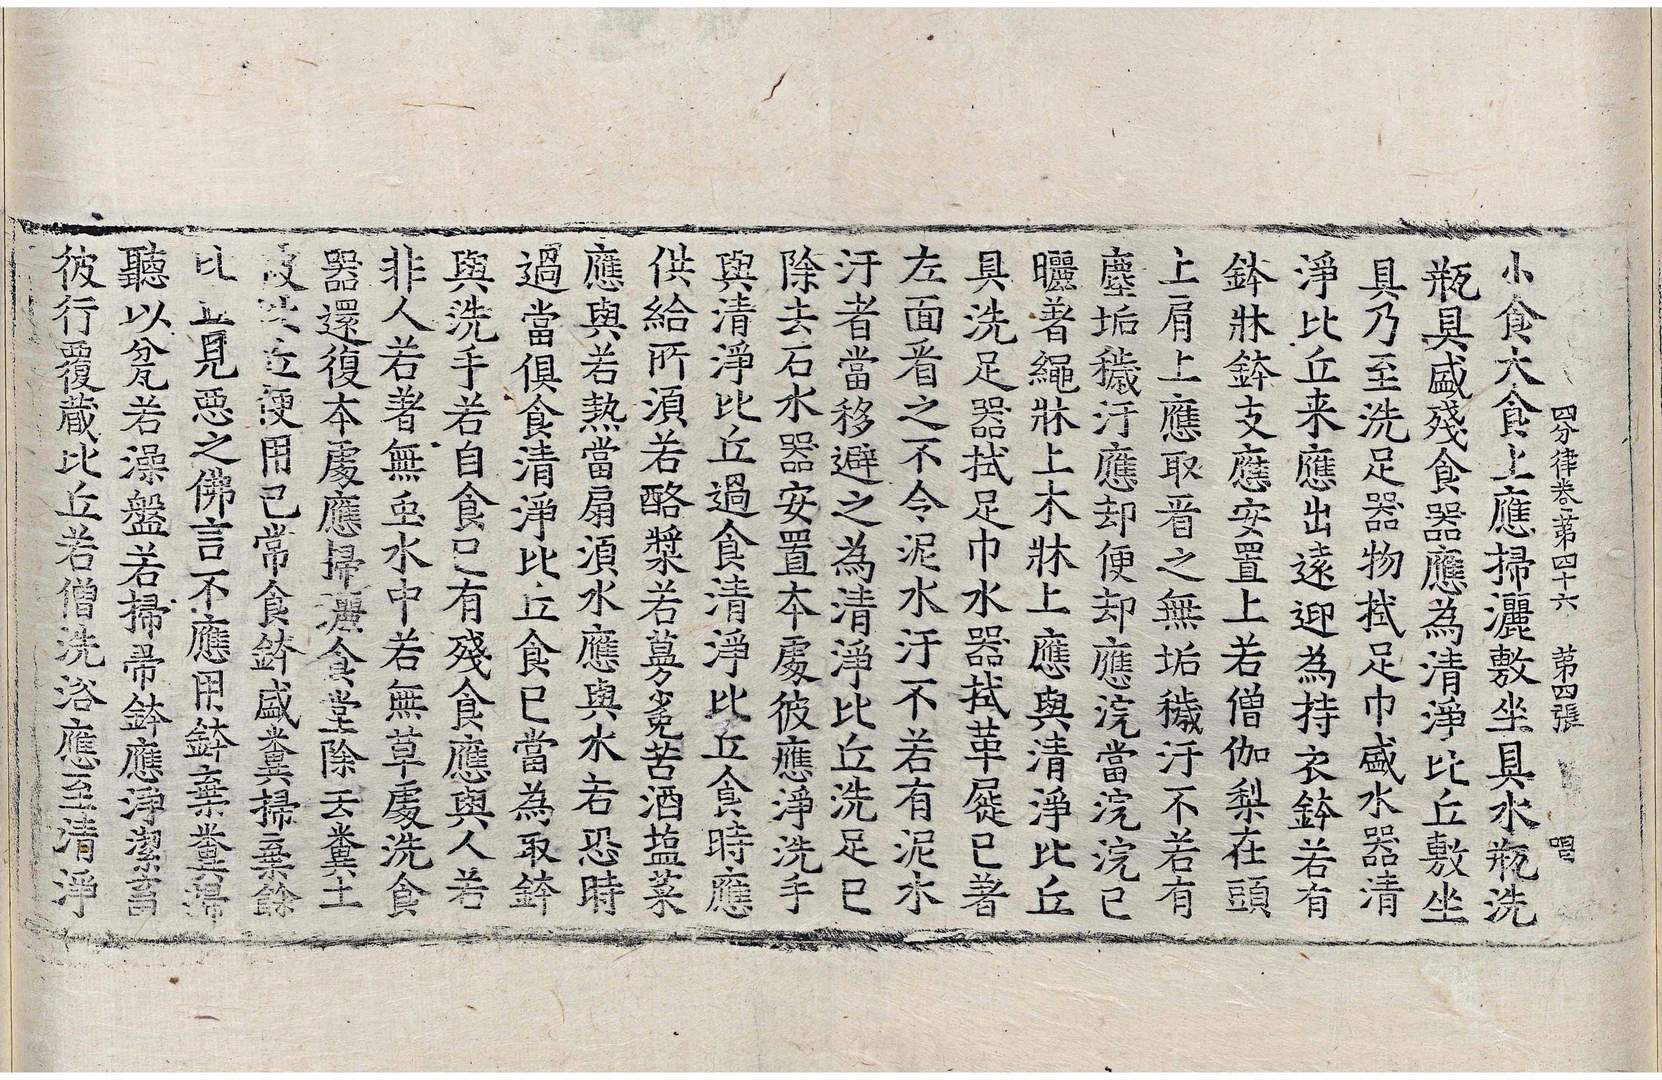 四分律卷第四十六 第四張 唱
小食大食上應掃灑敷坐具水瓶洗
瓶具盛殘食器應為清淨比丘敷坐
具乃至洗足器物拭足巾盛水器清
淨比丘来應出遠迎為持衣鉢若有
鉢牀鉢支應安置上若僧伽梨在頭
上肩上應取㸔之無垢穢汙不若有
塵垢穢汙應却便却應浣當浣浣已
曬著繩牀上木牀上應與清淨比丘
具洗足器拭足巾水器拭革屣已著
左面㸔之不令泥水汙不若有泥水
汙者當移避之為清淨比丘洗足已
除去石水器安置本處彼應淨洗手
與清淨比丘過食清淨比丘食時應
供給所須若酪漿若苦酒塩菜
應與若熱當扇須水應與水若恐時
過當俱食清淨比丘食已當為取鉢
與洗手若自食已有殘食應與人若
非人若著無虫水中若無草處洗食
器還復本處應掃灑食堂除去糞土
比丘便用已常食鉢盛糞掃棄餘
比丘見惡之佛言不應用鉢棄糞掃
聽以瓮若澡盤若掃帚鉢應淨潔畜
彼行覆藏比丘若僧洗浴應至清淨